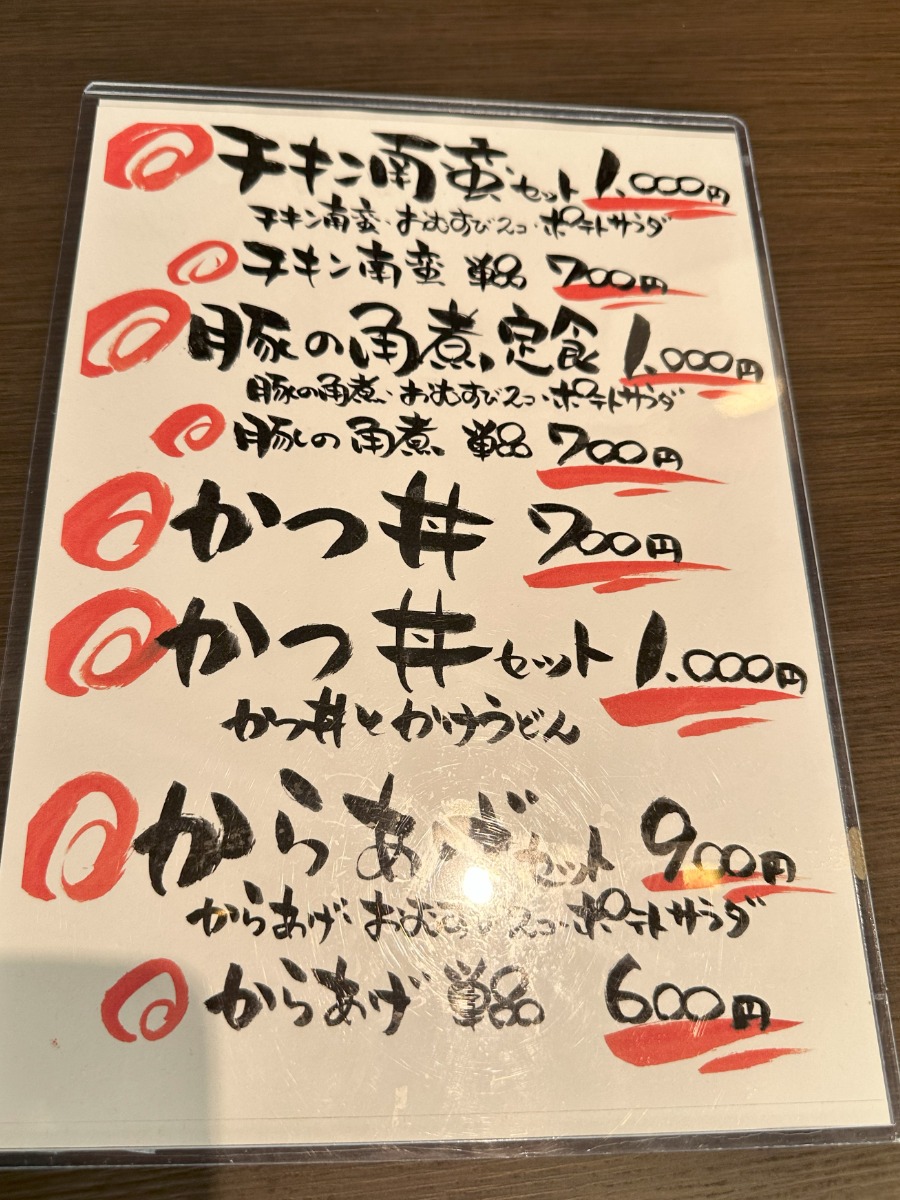 チキン南蛮セット 1.000円
チキン南蛮・おむすび2コ・ポテトサラダ
チキン南蛮 単品 700円
豚の角煮定食 1.000円
豚の角煮・おむすび2コ・ポテトサラダ
豚の角煮 単品 700円
かつ丼 700円
かつ丼セット 1.000円
かつ丼とかけうどん
からあげセット 900円
からあげ・おむすび2コ・ポテトサラダ
からあげ 単品 600円